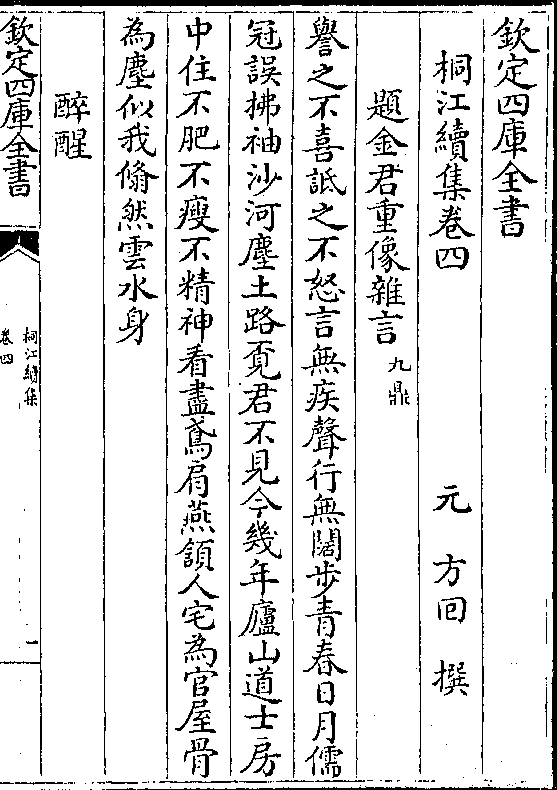 欽定四庫全書
桐江續集卷四　元　方回　撰
題金君重像雜言九鼎
譽之不喜詆之不怒言無疾聲行無闊步青春日月儒
冠誤拂袖沙河塵土路覔君不見今幾年廬山道士房
中住不肥不瘦不精神看盡鳶肩燕頷人宅為官屋骨
為塵似我翛然雲水身
醉醒
欽定四庫全書
桐江續集
卷四
一